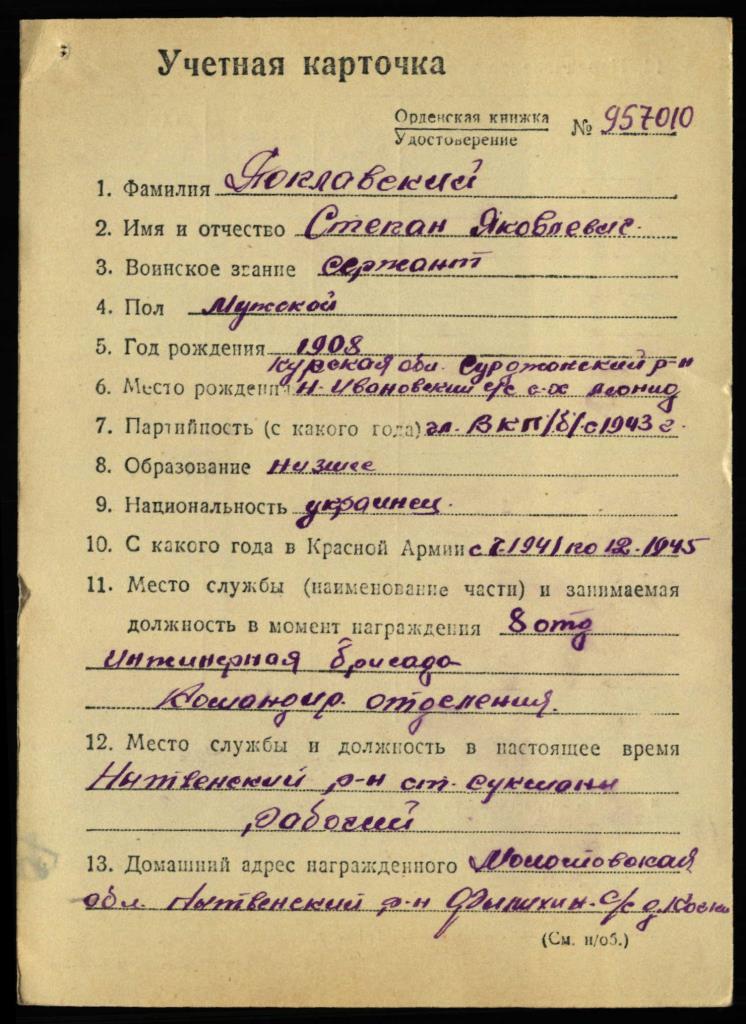 Учетная карточка
Орденская книжка
Удостоверение
№ 957010
1. Фамилия Поклавский
2. Имя и отчество Степан Яковлевич.
3. Воинское звание сержант
4. Пол Мужской
5. Год рождения 1908
Курская обл. р-н
6. Место рождения Н-Ивановский с/с с-х
7. Партийность (с какого года) чл. ВКП/б/с 1943 г.
8. Образование низшее
9. Национальность украинец.
10. С какого года в Красной Армии с 7.1941 по 12.1945
11. Место службы (наименование части) и занимаемая
должность в момент награждения 8 отд
инжинерная бригада
Командир. отделения.
12. Место службы и должность в настоящее время
Нытвенский р-н ст. сукманы
рабочий
13. Домашний адрес награжденного Молотовская
обл. Нытвенский р-н с/с д.
(См. н/об.)